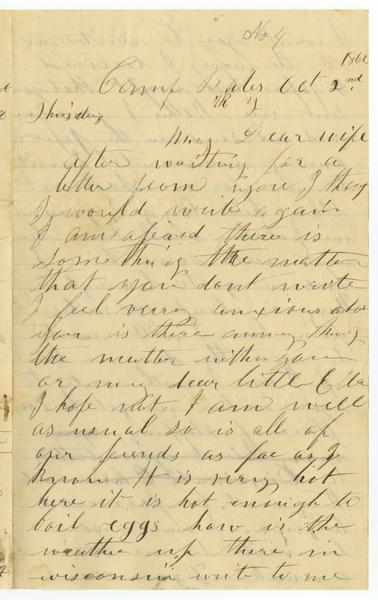 No 4
Camp Bates Oct 2nd 1862
Thirsday
My Dear wife
after waiting for a
letter from you I thag
I would write again
I am afraid there is
something the matter
that you dont write
I feel verry anxious abou
you is there anny thing
the matter with you
or my dear little Ella
I hope not I am well
as usual so is all of
our friends as far as I
know. It is verry hot
here it is hot enough to
boil eggs how is the
weather up there in
wisconsin write to me